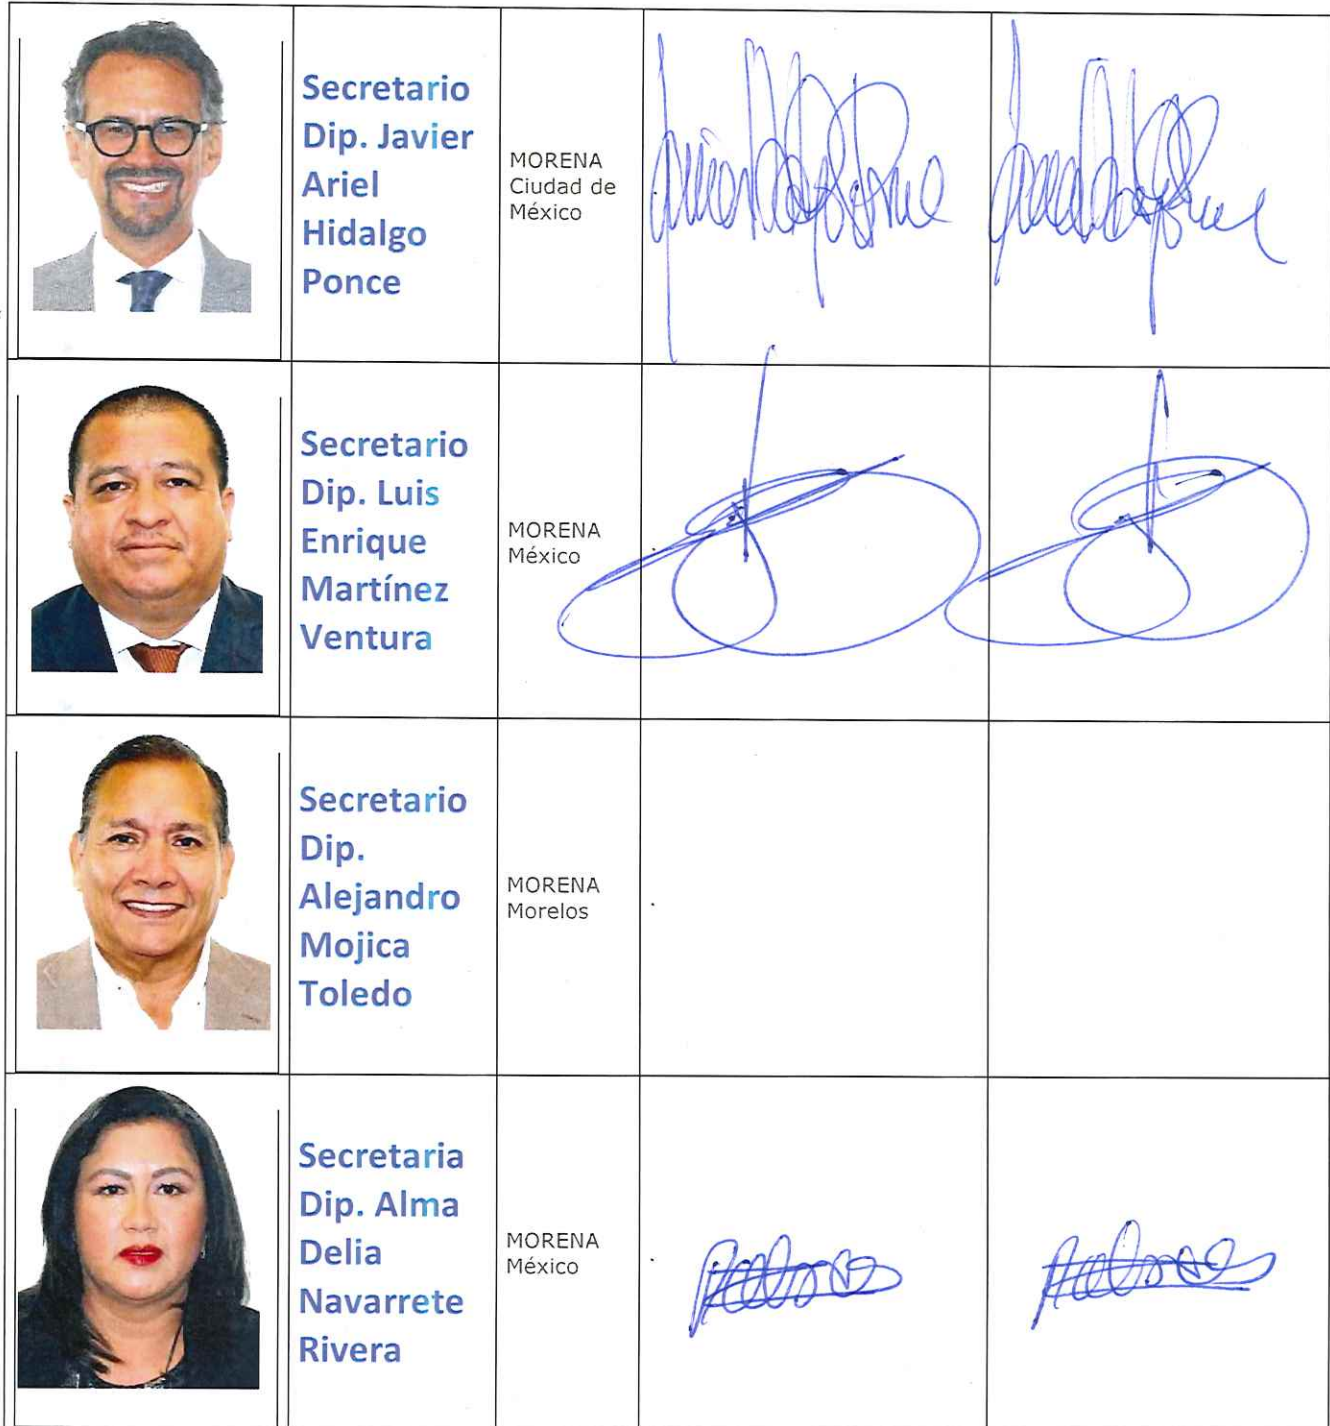 Secretario
Dip. Javier
Ariel
Hidalgo
Ponce
MORENA
Ciudad de
México
Secretario
Dip. Luis
Enrique
Martínez
Ventura
MORENA
México
Secretario
Dip.
Alejandro
Mojica
Toledo
MORENA
Morelos
Secretaria
Dip. Alma
Delia
Navarrete
Rivera
MORENA
México